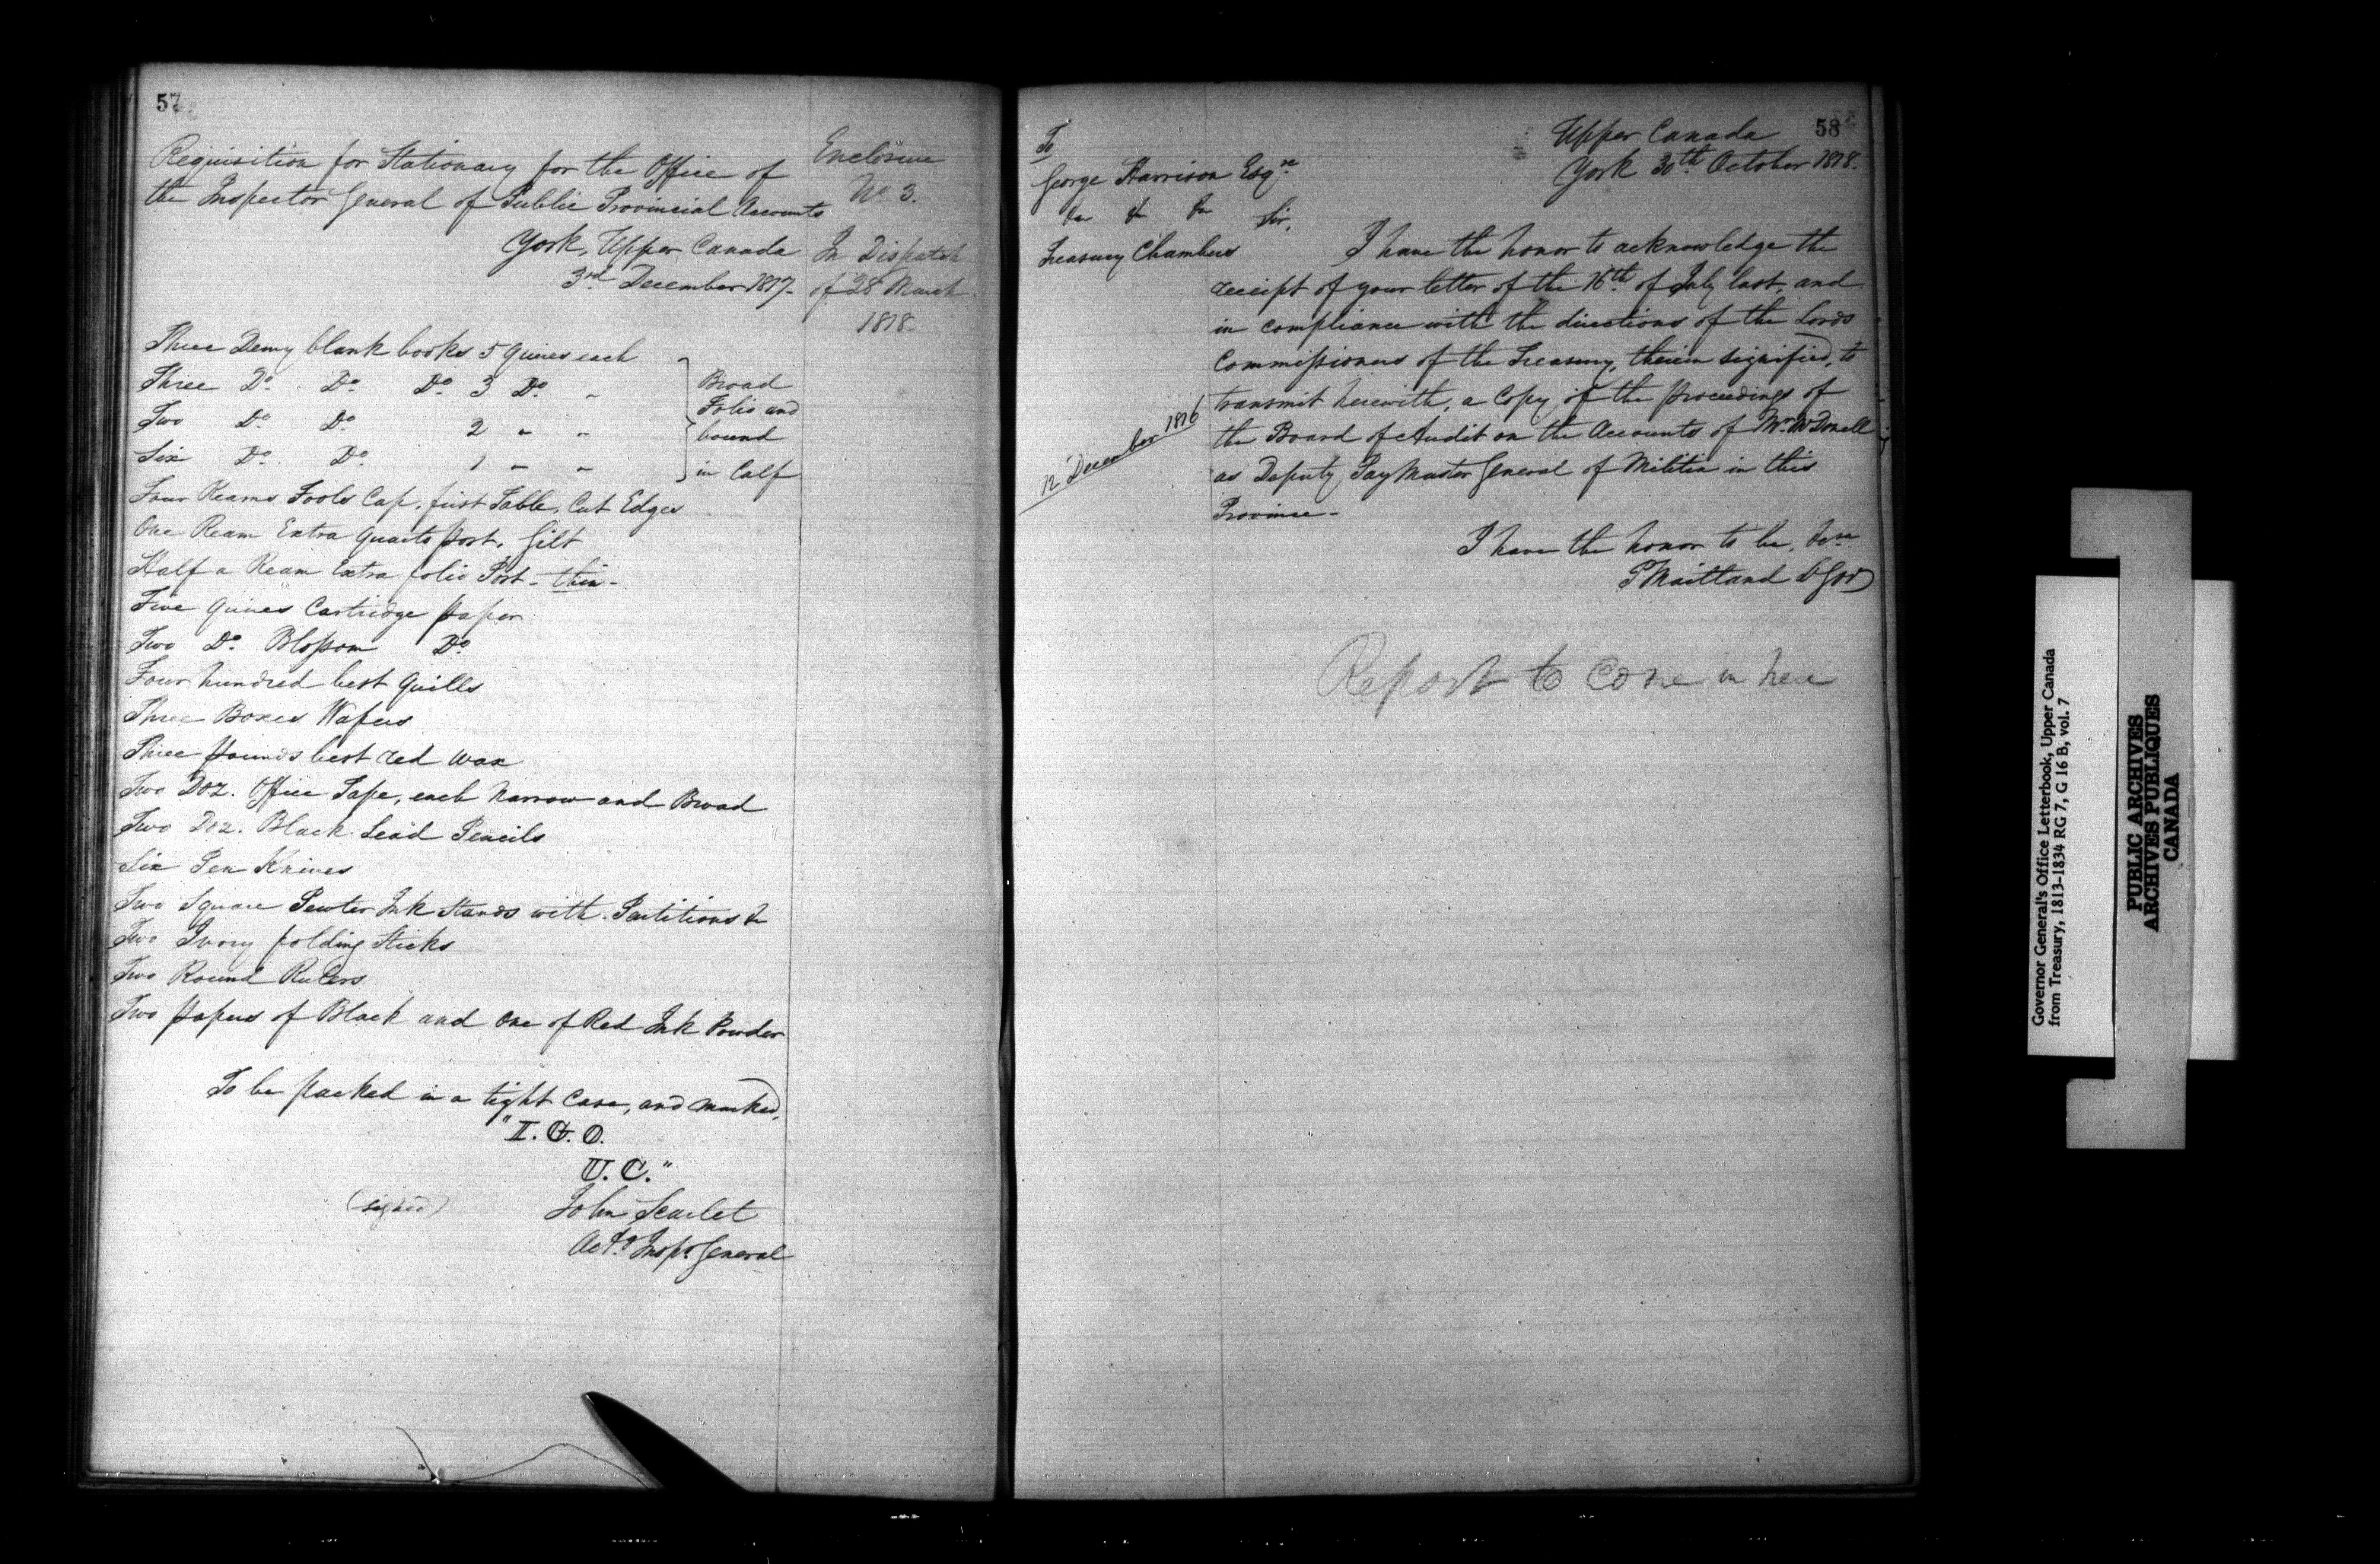 57
Requisition for Stationary for the Office of
the Inspector General of Public Provincial Accounts
York, Upper Canada
3rd December 1817.
Enclosure
No 3.
In Dispatch
of 28 March
1818.
Three Demy blank books 5 Quires each
Three Do. Do Do 3 Do "
Two Do Do 2 " "
Six Do. Do. 1 " "
Broad
Folio and
bound
in Calf
Four Reams Fools Cap, first Table, Cut Edges
One Ream Extra Quarto post, Gilt
Half a Ream Extra folio Post - thin -
Five Quires Cartridge paper
Two Do. Blossom Do
Four hundred best Quills
Three Boxes Wafers
Three pounds best red wax
Two Doz. Office Tape, each Narrow and Broad
Two Doz. Black Lead Pencils
Six Pen Knives
Two Square Pewter Ink Stands with Partitions &c
Two Ivory folding Sticks
Two Round Rulers
Two papers of Black and One of Red Ink Powder
To be packed in a tight Case, and marked,
"I. G. O.
U. C."
(signed) John Scarlet
Actg Inspr General
58
Upper Canada
York 30th October 1818.
To
George Harrison Esqre
&c &c &c
Treasury Chambers
Sir,
I have the honor to acknowledge the
receipt of your letter of the 16th of July last, and
in compliance with the directions of the Lords
Commissioners of the Treasury, therein signified, to
transmit herewith, a Copy of the proceedings of
the Board of Audit on the Accounts of Mr McDonell
as Deputy Pay Master General of Militia in this
Province -
12 December 1816
I have the honor to be, &c
P Maitland Lt Gov
Report to come in here
Governor General's Office Letterbook, Upper Canada
from Treasury, 1813-1834 RG 7, G 16 B, vol. 7
PUBLIC ARCHIVES
ARCHIVES PUBLIQUES
CANADA